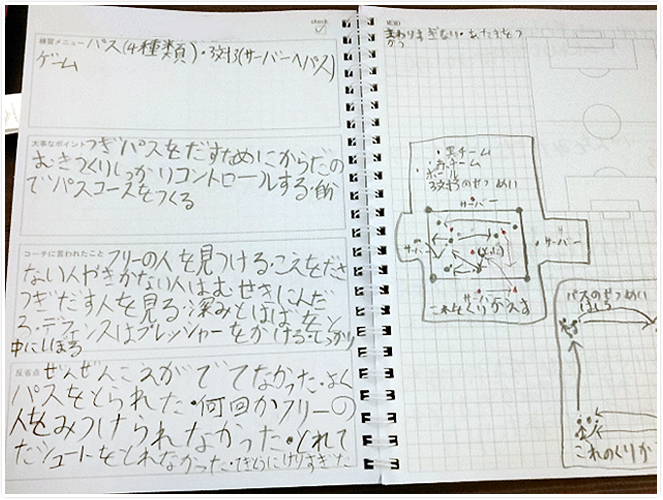 check
練習メニュー パス(4種類)・3対3(サーバーへパス)
ゲーム
大事なポイント つぎパスをだすためにからだの
むきつくりしっかりコントロールする・自分
でパスコースをつくる
コーチに言われたこと フリーの人を見つける・こえをださ
ない人やきかない人はむせきにんだ
つぎだす人を見る・深みとはばをとる
・ディフェンスはプレッシャーをかける・しっかり
中にしぼる
反省点 ぜんぜんこえがでてなかった・よく
パスをとられた・何回かフリーの
人をみつけられなかった・とれて
たシュートをとれなかった・
MEMO
まわりすぎない・
・黒チーム
・赤チーム
ボール
3対3のせつめい
サーバー
サーバー
サーバー
サーバー
これをくりかえす
パスのせつめい
はしる
これのくりか